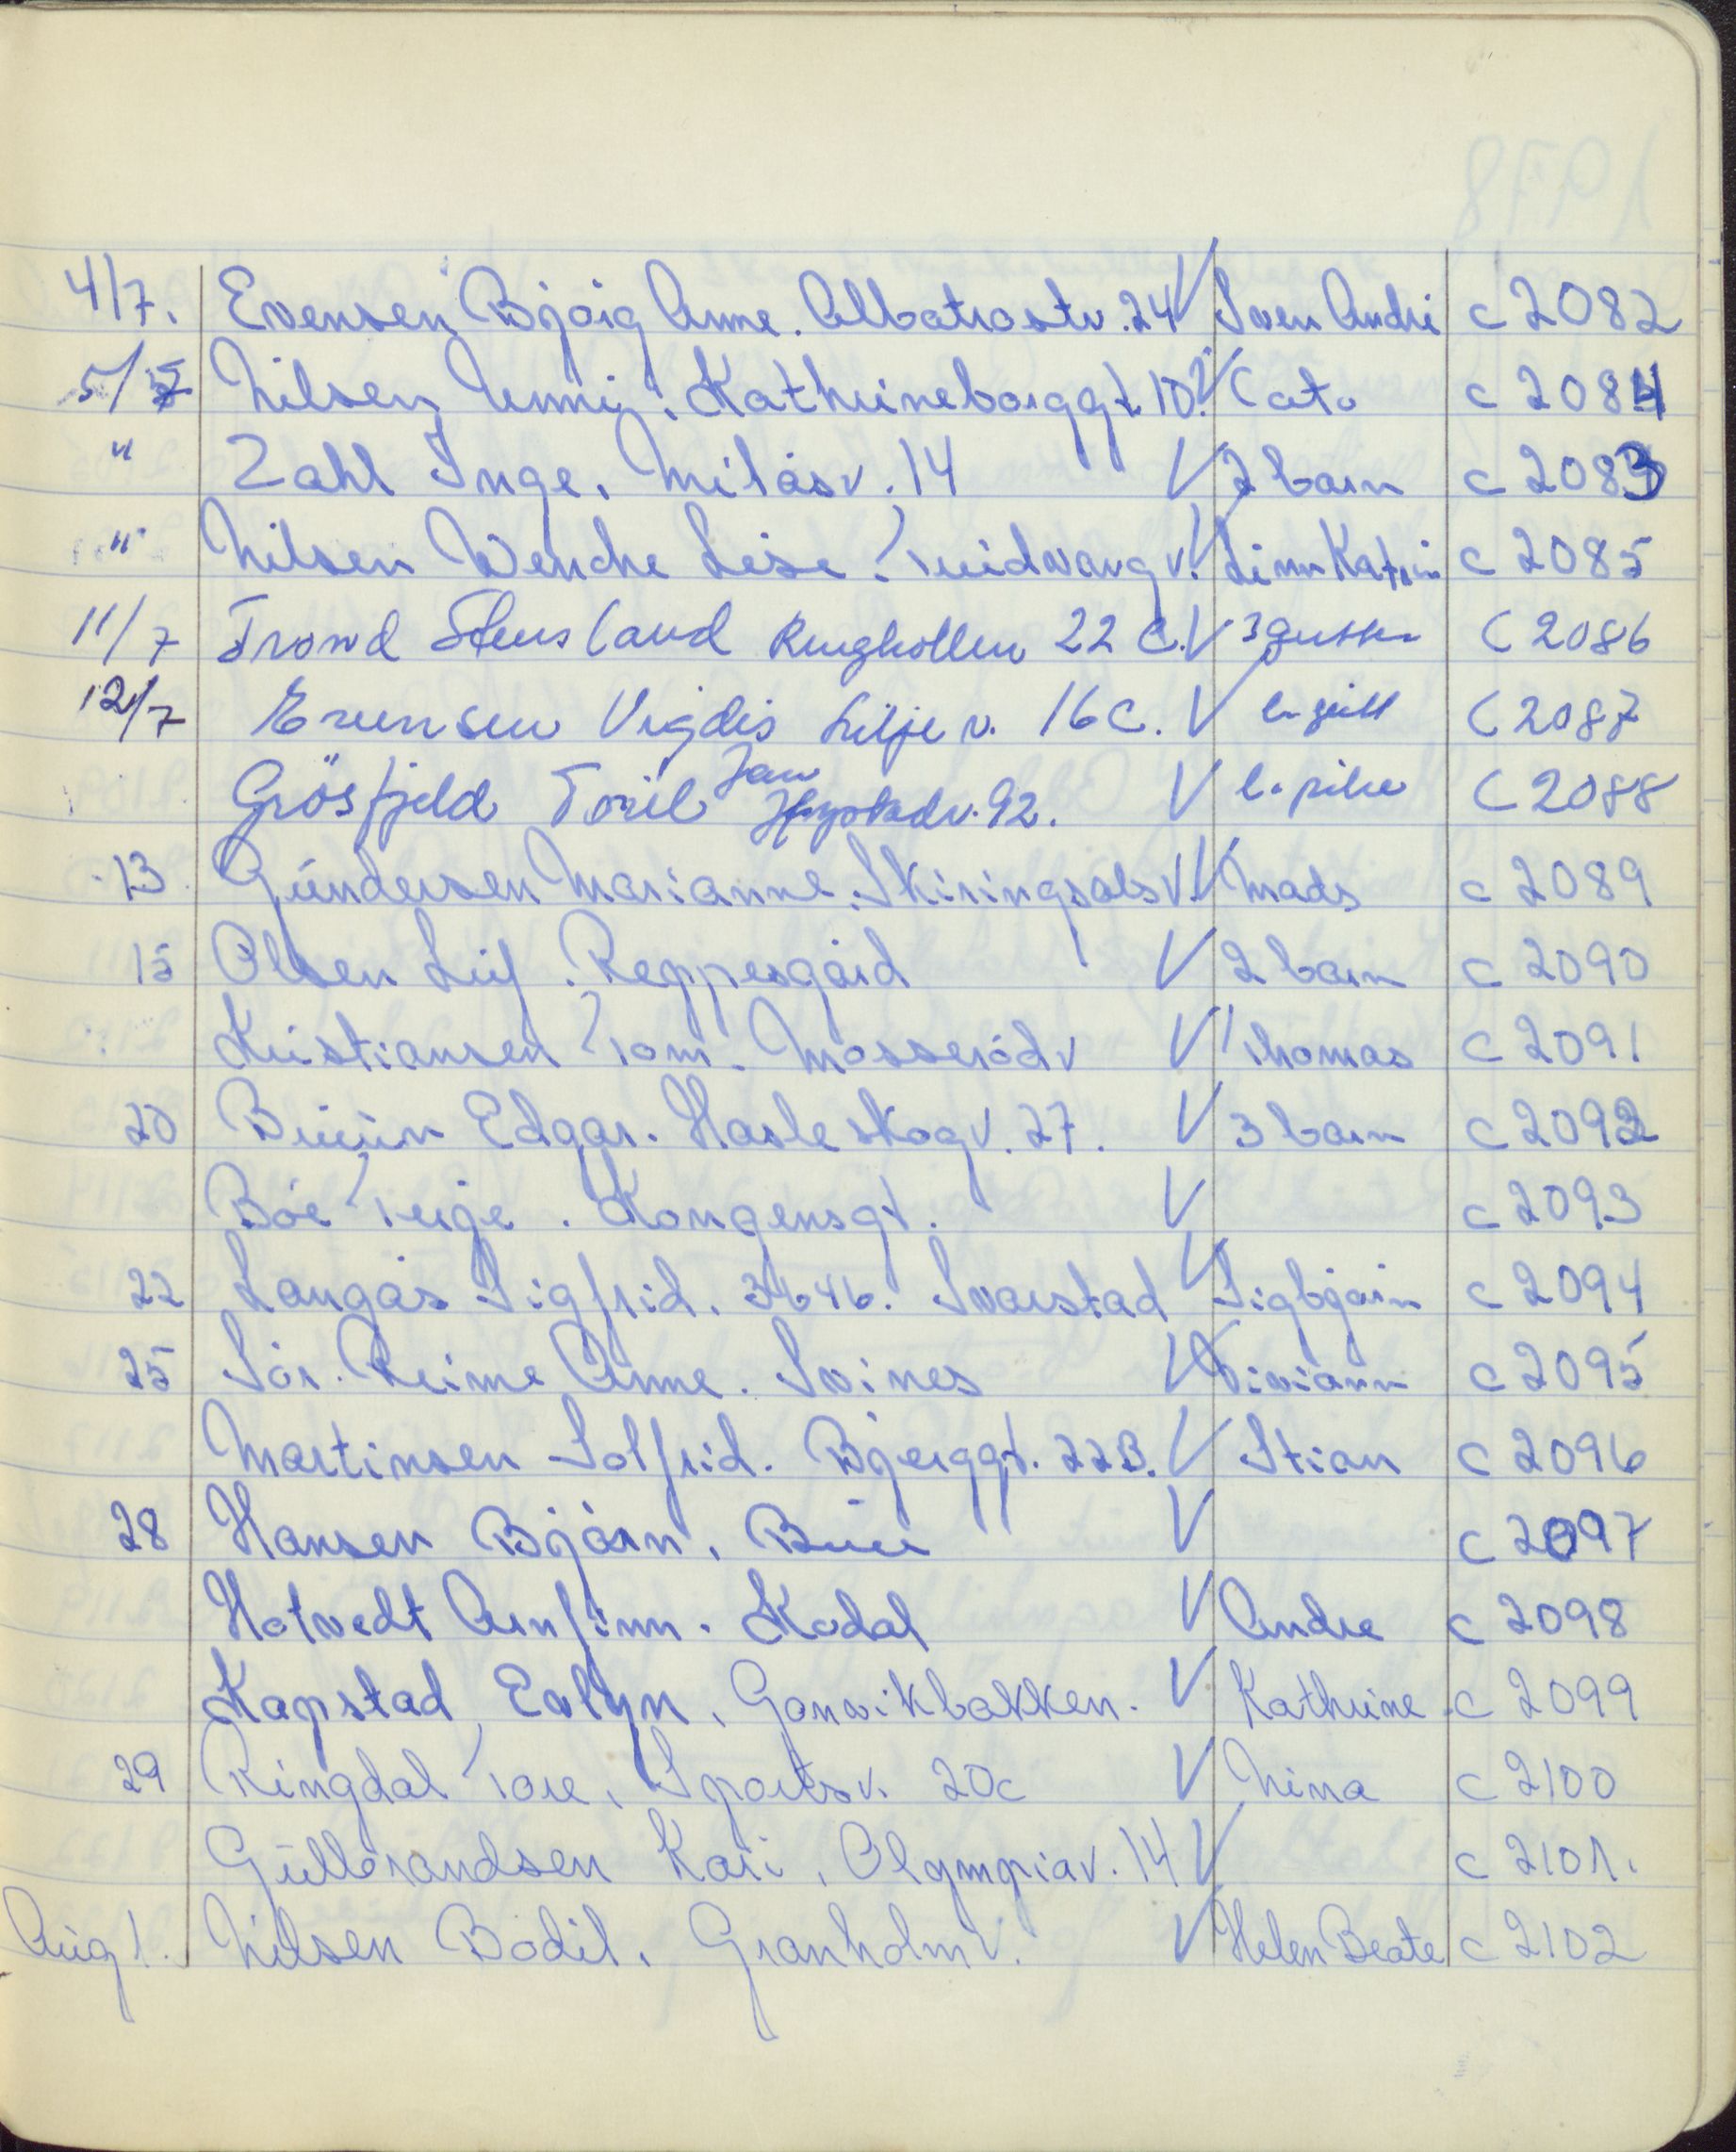 4/7. Evensen Bjørg Anne. Albatrostv. 24 V Sven André c 2082
5/7 Nilsen Unni. Kathrineborggt 10? V Cato c 2084
" Zahl Inge. Milåsv. 14 V 2 barn c 2083
" Nilsen Wenche Lise. Tveidvang v. V Linn Katrin c 2085
11/7 Trond Stensland Ringkollen 22 C. V 3 gutter C 2086
12/7 Evensen Vigdis Lilje v. 16 C. V l. gutt C 2087
Grøsfjeld Toril Jan V l. pike C 2088
92.
13 Gundersen Marianne. Skiringsalsv. V Mads c 2089
15 Olsen Leif. Reppesgård V 2 barn c 2090
Kristiansen Tom. Mosserödv V Thomas c 2091
20 Bruun Edgar. Hasle skogv. 27. V 3 barn c 2092
Bøe Terje. Kongensgt. V c 2093
22 Langås Sigfrid. 3646. Svarstad V Sigbjørn c 2094
25 Sør. Reime Anne. Svines V Viviann c 2095
Martinsen Solfrid. Bjerggt. 22B. V Stian c 2096
28 Hansen Bjørn. V c 2097
Hotvedt Arnfinn. Kodal V Andre c 2098
Kapstad Evlyn. Gonvikbakken. V Kathrine c 2099
29 Ringdal Tore. Sportsv. 20c V Nina c 2100
Gulbrandsen Kari. Olympiav. 14 V c 2101.
Aug 1. Nilsen Bodil. Granholmv. V Helen Beate c 2102